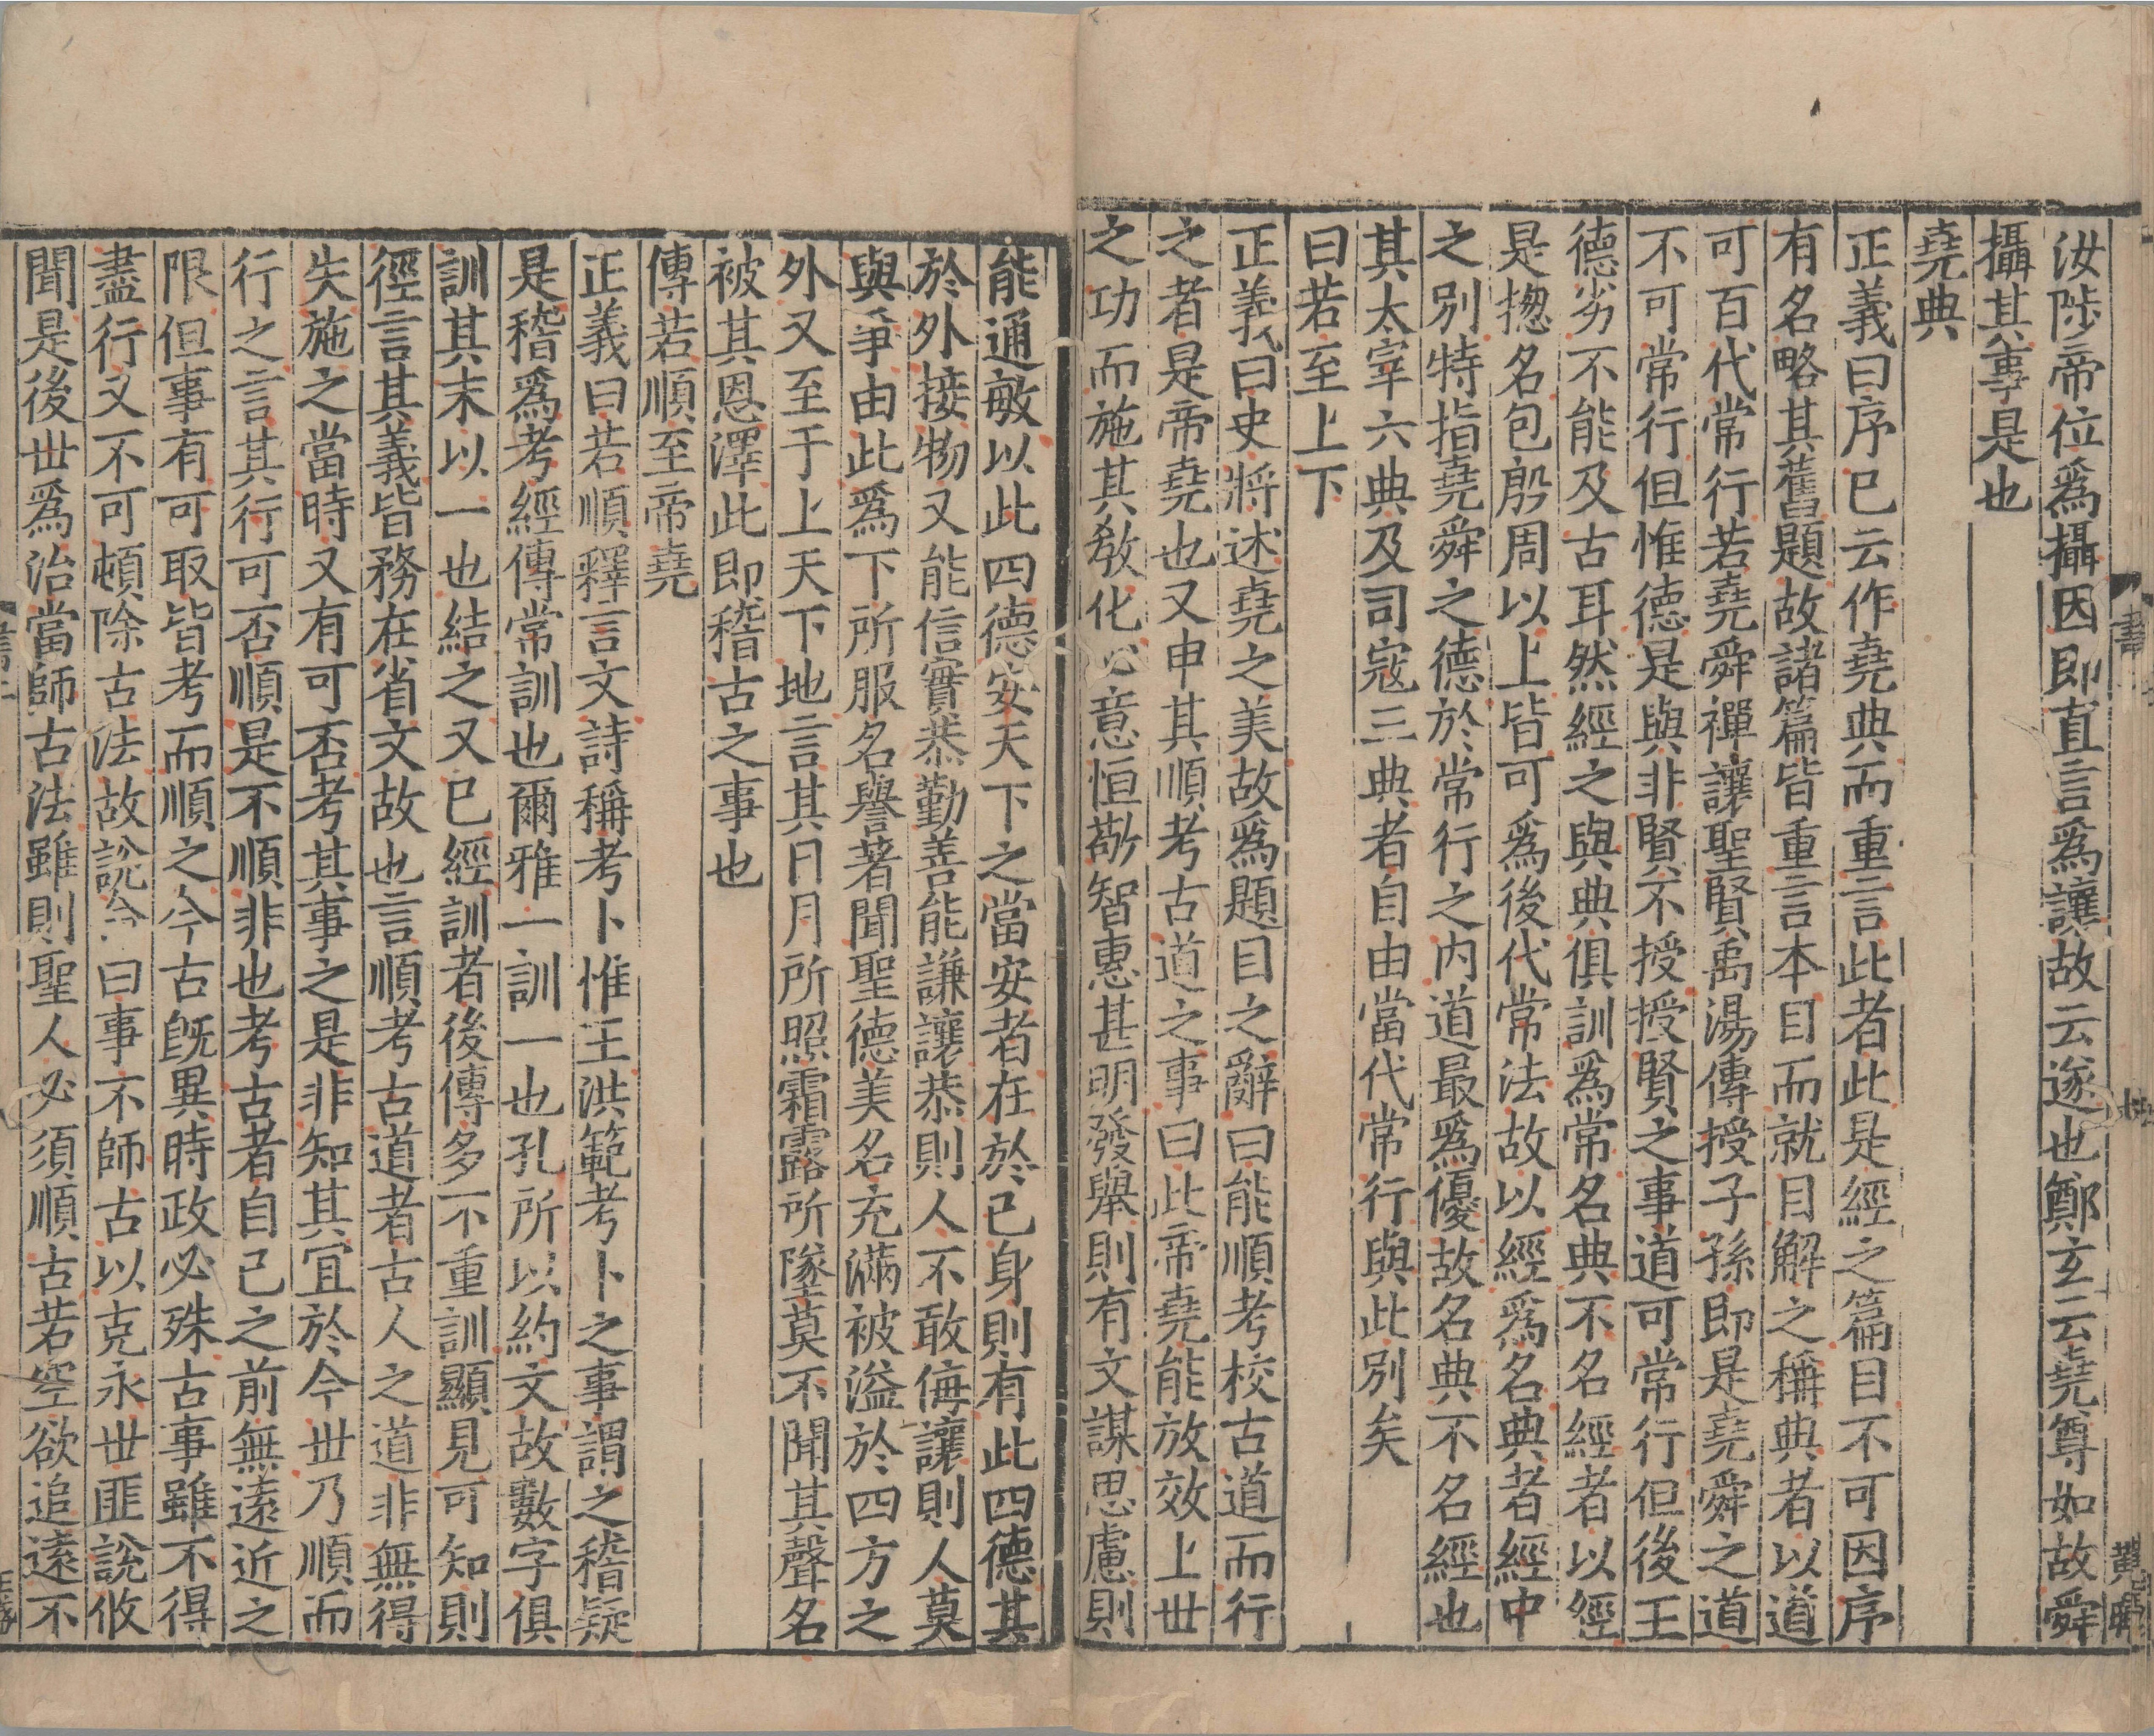 汝陟帝位爲攝因即直言爲讓故云遂也鄭玄云堯尊如故舜
攝其事是也
堯典
正義曰序已云作堯典而重言此者此是經之篇目不可因序
有名略其舊題故諸篇皆重言本目而就目解之稱典者以道
可百代常行若堯舜禪讓聖賢禹湯傳授子孫即是堯舜之道
不可常行但惟德是與非賢不授授賢之事道可常行但後王
德劣不能及古耳然經之與典俱訓爲常名典不名經者以經
是揔名包殷周以上皆可爲後代常法故以經爲名典者經中
之別特指堯舜之德於常行之内道最爲優故名典不名經也
其太宰六典及司寇三典者自由當代常行與此別矣
曰若至上下
正義曰史將述堯之美故爲題目之辭曰能順考校古道而行
之者是帝堯也又申其順考古道之事曰此帝堯能放效上世
之功而施其敎化必意恒敬智惠甚明發舉則有文謀思慮則
能通敏以此四德安天下之當安者在於己身則有此四德其
於外接物又能信實恭勤善能謙讓恭則人不敢侮讓則人莫
與爭由此爲下所服名譽著聞聖德美名充滿被溢於四方之
外又至于上天下地言其日月所照霜露所墜莫不聞其聲名
被其恩澤此即稽古之事也
傳若順至帝堯
正義曰若順釋言文詩稱考卜惟王洪範考卜之事謂之稽疑
是稽爲考經傳常訓也爾雅一訓一也孔所以約文故數字俱
訓其末以一也結之又已經訓者後傳多不重訓顯見可知則
徑言其義皆務在省文故也言順考古道者古人之道非無得
失施之當時又有可否考其事之是非知其宜於今世乃順而
行之言其行可否順是不順非也考古者自己之前無遠近之
限但事有可取皆考而順之今古旣異時政必殊古事雖不得
盡行又不可頓除古法故說命曰事不師古以克永世匪說攸
聞是後世爲治當師古法雖則聖人必須順古若空欲追遠不